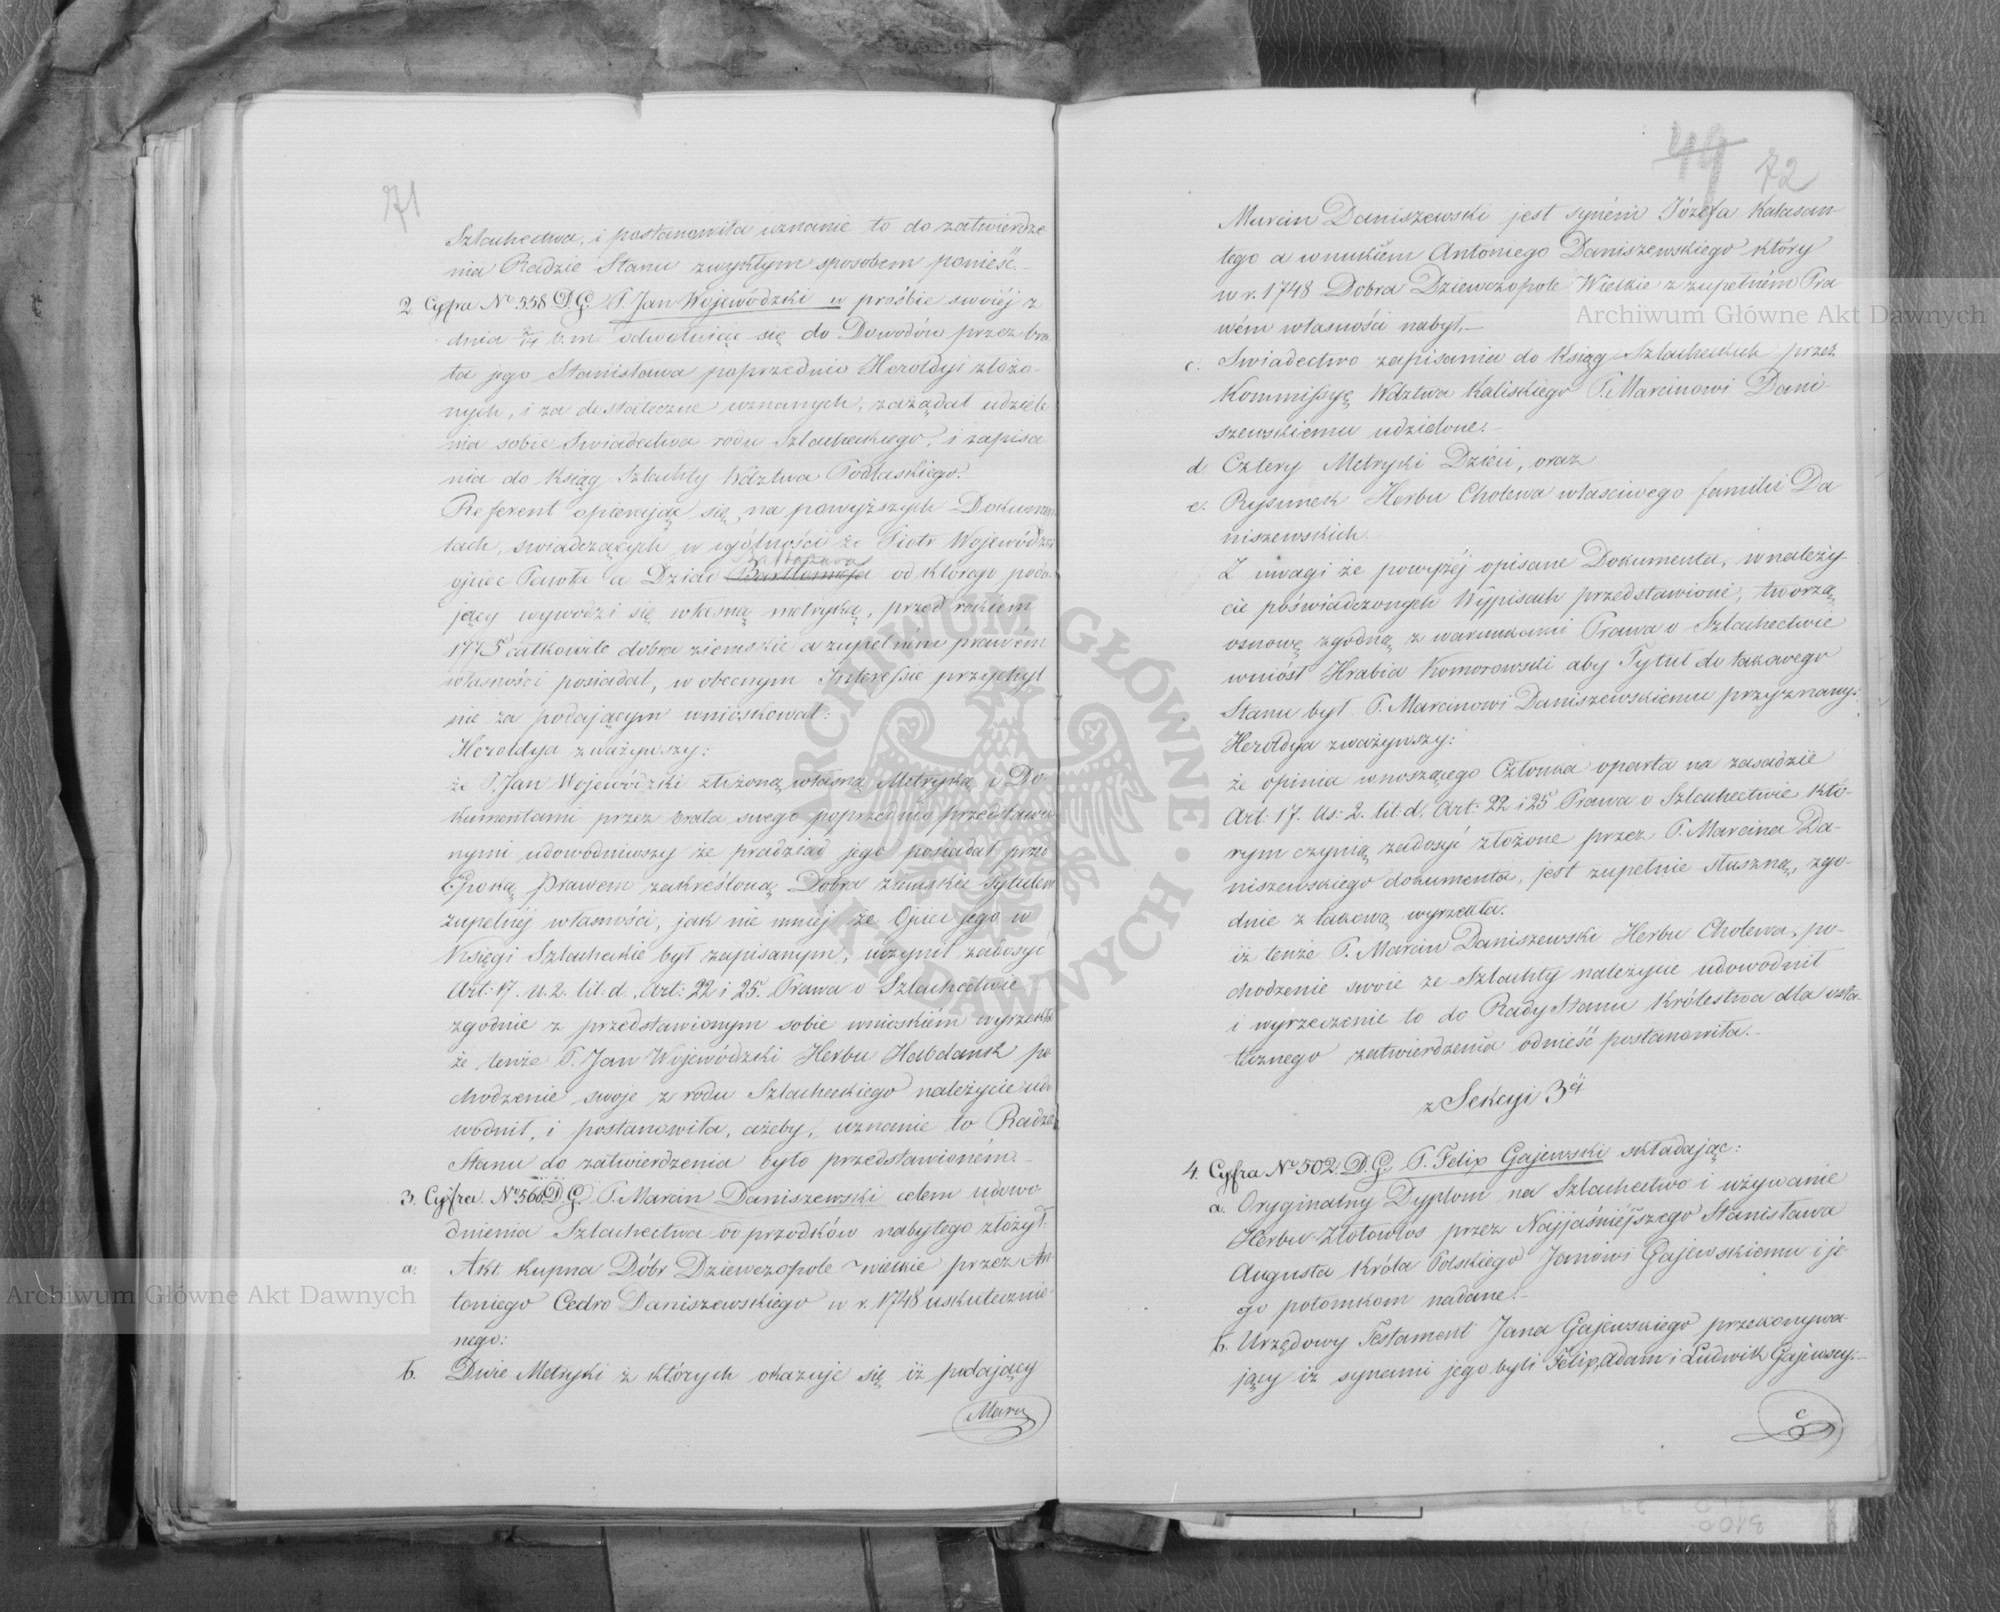 71
Szlachectwa, i postanowiła uznanie to do zatwierdze
nia Radzie Stanu zwykłym sposobem ponieść.
2 Cyfra No 558 D.G. P. Jan Wojewódzki w prośbie swoiéj z
dnia b. m. odwołuiąc się do Dowodów przez bra
ta jego Stanisława poprzednio Heroldyi złożo-
nych, i za dostateczne uznanych, zażądał udziele
nia sobie Swiadectwa rodu Szlacheckiego, i zapisa
nia do Ksiąg Szlachty Wdztwa Podlaskiego.
Referent opierając się na powyższych Dokumen
tach, swiadczących w ogólności że Piotr Wojewódzki
ojciec Pawła a Dziad Bartłomieja od którego poda-
jący wywodzi się własną metryką, przed rokiem
1775 całkowite dobra ziemskie a zupełnem prawém
własności posiadał, w obecnym Interessie przychyl
nie za podającym wnioskował:
Heroldya zważywszy:
że P. Jan Wojewódzki złożoną własną Metryką i Do
kumentami przez brata swego poprzednio przedstawio
nymi udowodniwszy że pradziad jego posiadał przed
Epoką prawem zakreśloną Dobra ziemskie tytułem
zupełnéj własności, jak nie mniej że Ojciec jego w
Księgi Szlacheckie był zapisanym, uczynił zadosyć
Art: 17. u. 2. lit: d. Art: 22 i 25. Prawa o Szlachectwie
zgodnie z przedstawionym sobie wnioskiém wyrzekła
że tenże P. Jan Wojewódzki Herbu Habdank po
chodzenie swoje z rodu Szlacheckiego należycie udo
wodnił, i postanowiła, ażeby, uznanie to Radzie
Stanu do zatwierdzenia było przedstawioném.
3. Cyfra No 560 D.G. P. Marcin Daniszewski celem udowo
dnienia Szlachectwa od przodków nabytego złożył:
a: Akt kupna Dóbr Dziewczopole wielkie przez An
toniego Cedro Daniszewskiego w r. 1748 uskutecznio-
nego:
b. Dwie Metryki z których okazuje się iż podający
Marcin
49 72
Marcin Daniszewski jest syném Józefa Kalasan-
tego a wnukiem Antoniego Daniszewskiego który
w r. 1748 Dobra Dziewczopole Wielkie z zupełném Pra
wém własności nabył.
c. Swiadectwo zapisania do Ksiąg Szlacheckich przez
Kommissyę Wdztwa Kaliskiego P. Marcinowi Dani-
szewskiemu udzielone.
d Cztery Metryki Dzieci, oraz
e. Rysunek Herbu Cholewa własciwego familii Da
niszewskich.
Z uwagi że powyżéj opisane Dokumenta, w należy-
cie poświadczonych Wypisach przedstawione, tworzą
osnowę zgodną z warunkami Prawa o Szlachectwie
wniósł Hrabia Komorowski aby Tytuł do takowego
Stanu był P. Marcinowi Daniszewskiemu przyznany:
Heroldya zważywszy:
że opinia wnoszącego Członka oparta na zasadzie
Art: 17. us: 2. lit: d. Art: 22 i 25 Prawa o Szlachectwie któ-
rym czynią zadosyć złożone przez P. Marcina Da-
niszewskiego dokumenta, jest zupełnie słuszną, zgo-
dnie z takową wyrzekła:
iż tenże P. Marcin Daniszewski Herbu Cholewa, po-
chodzenie swoie ze Szlachty należycie udowodnił
i wyrzeczenie to do Rady Stanu Królestwa dla osta-
tecznego zatwierdzenia odnieść postanowiła.
z Sekcyi 3éj
4. Cyfra No 502. D.G. P. Felix Gajewski składając:
a. Oryginalny Dyplom na Szlachectwo i używanie
Herbu Złotowłos przez Najjaśniejszego Stanisława
Augusta Króla Polskiego Janowi Gajewskiemu i je
go potomkom nadane.
b. Urzędowy Testament Jana Gajewskiego przekonywa-
jący iż synami jego byli Felix, Adam i Ludwik Gajewscy.
c
Archiwum Główne Akt Dawnych
Archiwum Główne Akt Dawnych
ARCHIWUM GŁÓWNE AKT DAWNYCH